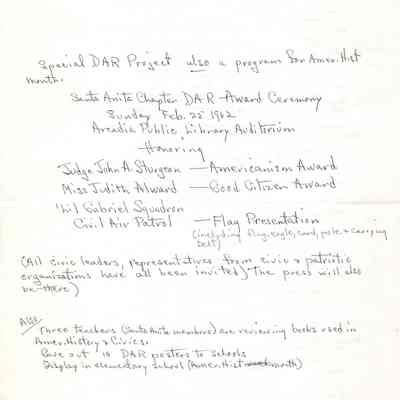 Special DAR Project also a program for Amer. Hist
month.
Santa Anita Chapter DAR - Award Ceremony
Sunday Feb. 25 1962
Arcadia Public Library Auditorium
Honoring
Judge John A. Sturgeon — Americanism Award
Miss Judith Alward — Good Citizen Award
Gabriel Squadron
Civil Air Patrol — Flag Presentation
(including flag, eagle, cord, pole + carrying
belt)
(All civic leaders, representatives from civic & patriotic
organizations have all been invited) The press will also
be there)
Also
Three teachers (Santa Anita members) are reviewing books used in
Amer. History & Civics.
Gave out 10 DAR posters to schools
Display in elementary school (Amer. Hist month)